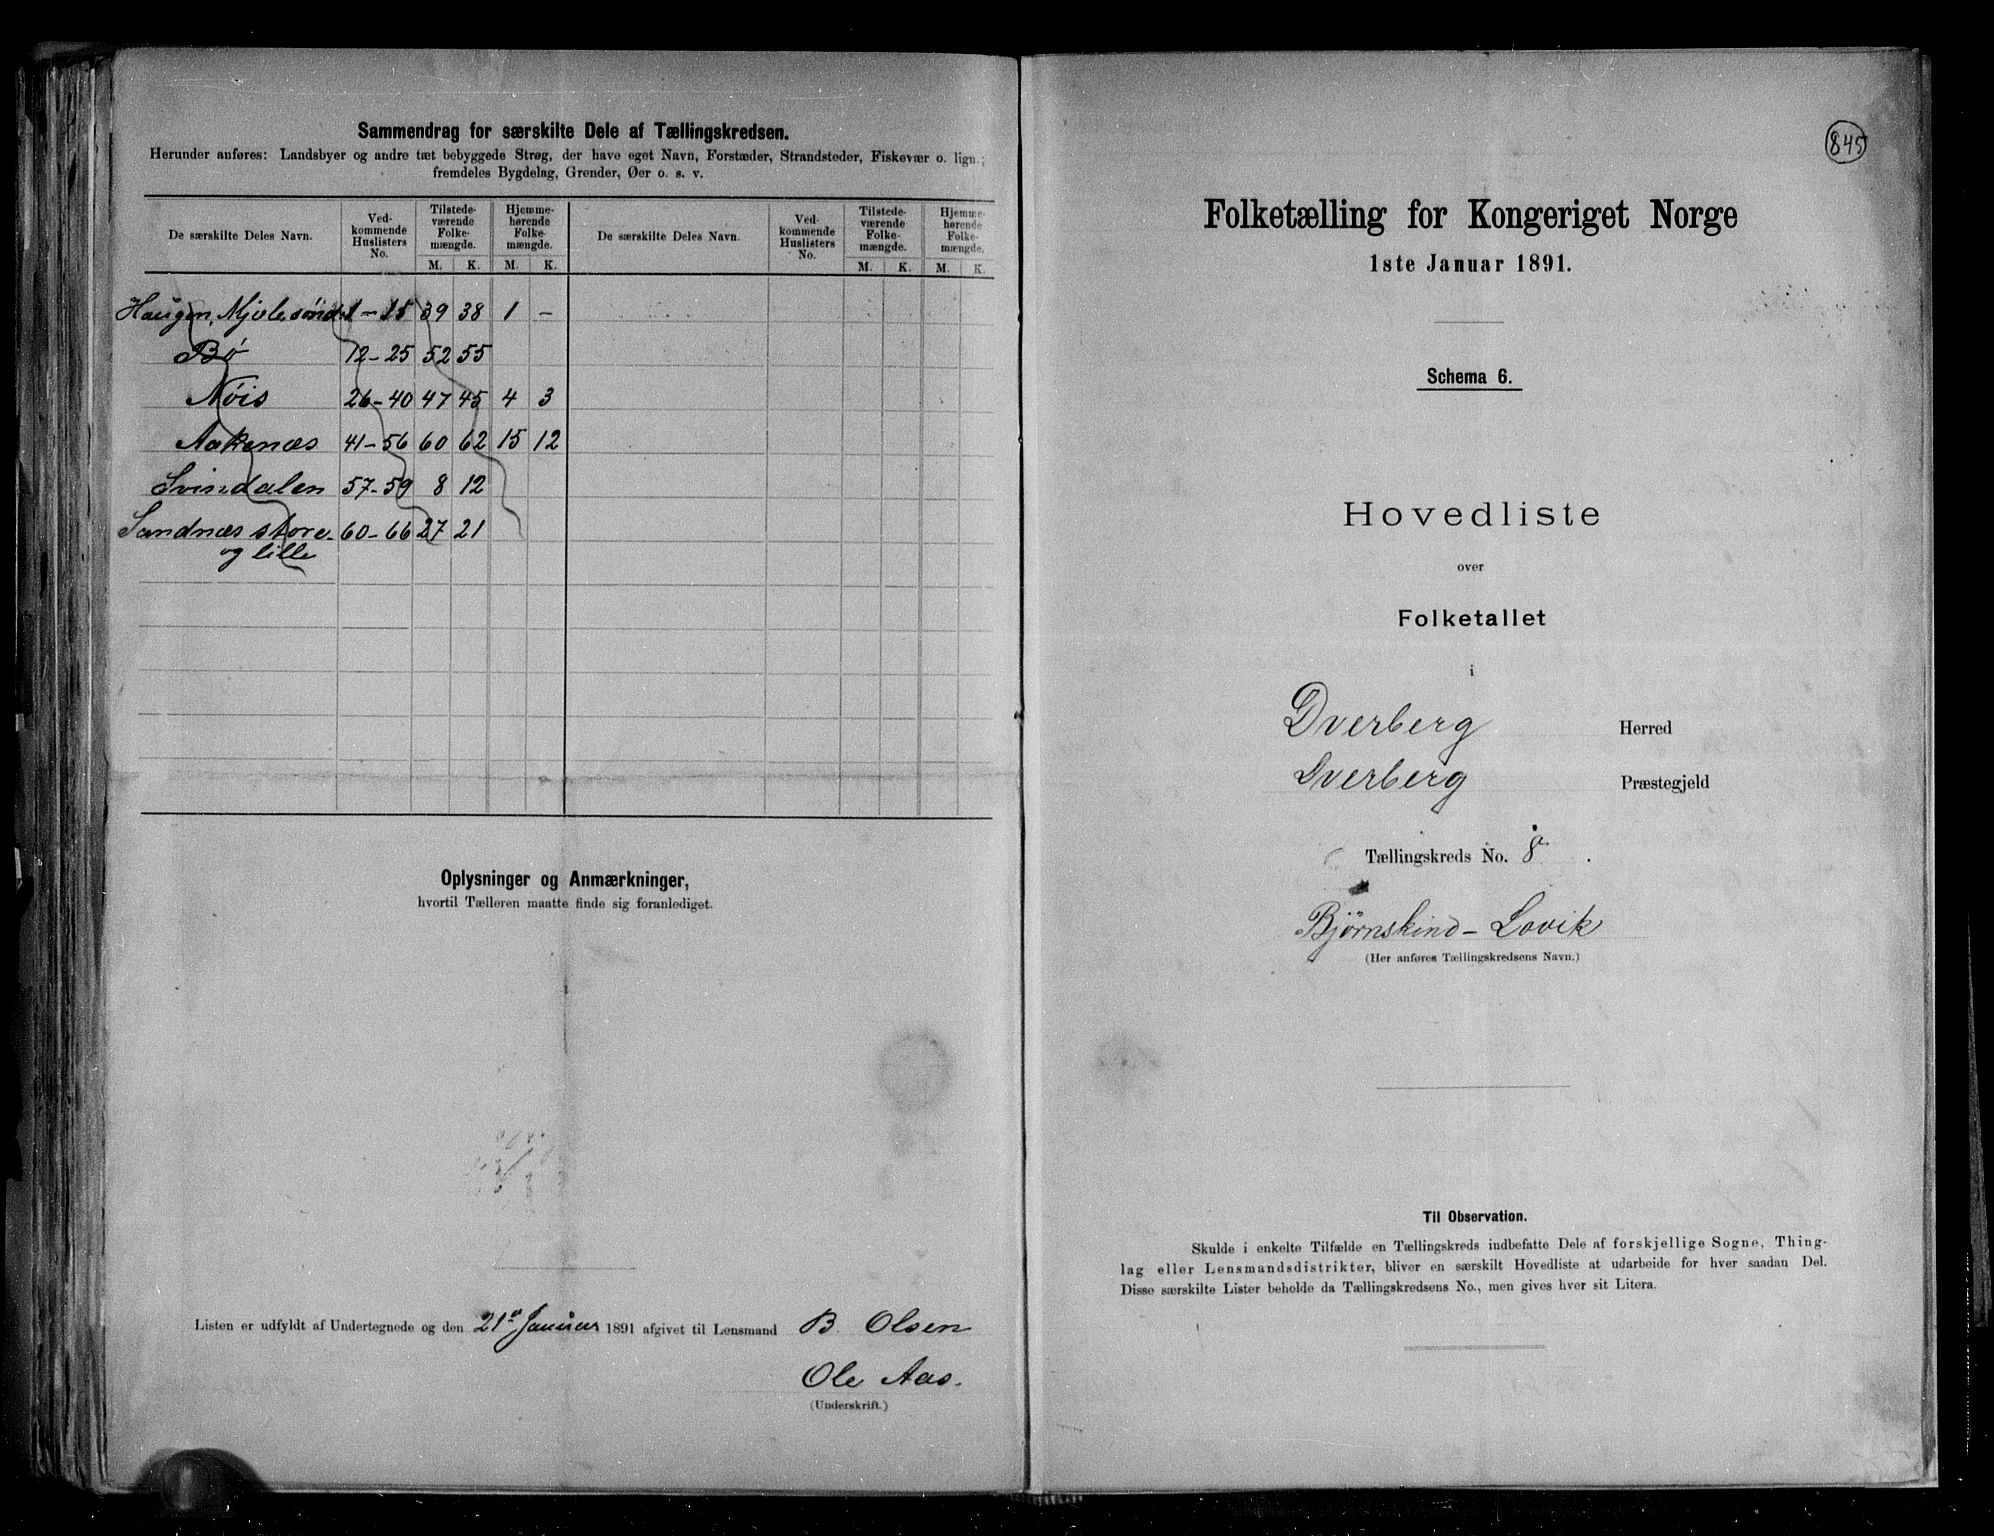 Sammendrag for særskilte Dele af Tællingskredsen.
Herunder anføres: Landsbyer og andre tæt bebyggede Strøg, der have eget Navn, Forstæder, Strandsteder, Fiskevær o. lign.;
fremdeles Bygdelag, Grender, Øer o. s. v.
De særskilte Deles Navn. Ved-kommende Huslisters No. Tilstede-værende Folke-mængde. Hjemme-hørende Folke-mængde. De særskilte Deles Navn. Ved-kommende Huslisters No. Tilstede-værende Folke-mængde. Hjemme-hørende Folke-mængde.
M. K. M. K. M. K. M. K.
Haugen, 39 38 1 –
Bø 12–25 52 55
Nøis 26–40 47 45 4 3
Aakenæs 41–56 60 62 15 12
Svindalen 57–59 8 12
Sandnæs store 60–66 27 21
og lille
Oplysninger og Anmærkninger,
hvortil Tælleren maatte finde sig foranlediget.
Listen er udfyldt af Undertegnede og den 21de Januar 1891 afgivet til Lensmand B. Olsen
Ole Aas.
(Underskrift.)
845
Folketælling for Kongeriget Norge
1ste Januar 1891.
Schema 6.
Hovedliste
over
Folketallet
i
Dverberg Herred
Dverberg Præstegjeld
Tællingskreds No. 8.
Bjørnskind – Lovik
(Her anføres Tællingskredsens Navn.)
Til Observation.
Skulde i enkelte Tilfælde en Tællingskreds indbefatte Dele af forskjellige Sogne, Thing-
lag eller Lensmandsdistrikter, bliver en særskilt Hovedliste at udarbeide for hver saadan Del.
Disse særskilte Lister beholde da Tællingskredsens No., men gives hver sit Litera.